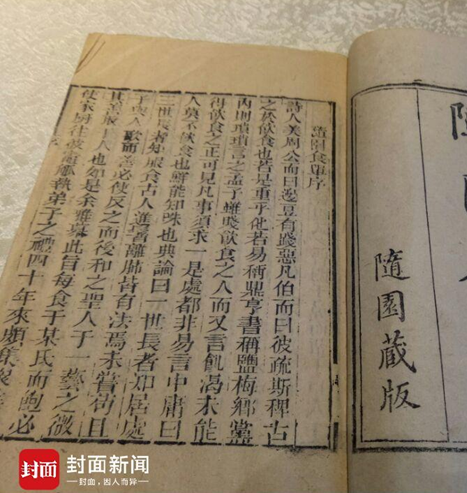 隨園藏版
隨園食單序
詩人美周公而曰籩豆有踐惡凡伯而曰彼疏斯稗古
之於飲食也若是重乎他若易稱鼎亨書稱鹽梅鄉黨
內則瑣瑣言之孟子雖賤飲食之人而又言飢渴未能
得飲食之正可見凡事須求一是處都非易言中庸曰
人莫不飲食也鮮能知味也典論曰一世長者知居處
三世長者知服食古人進鬐離肺皆有法焉未嘗苟且
子與人歌而善必使反之而後和之聖人于一藝之微
其善取於人也如是余雅慕此旨每食于某氏而飽必
使家廚往彼竈觚執弟子之禮四十年來頗集衆
封面
封面新闻
一封面，因人而异一